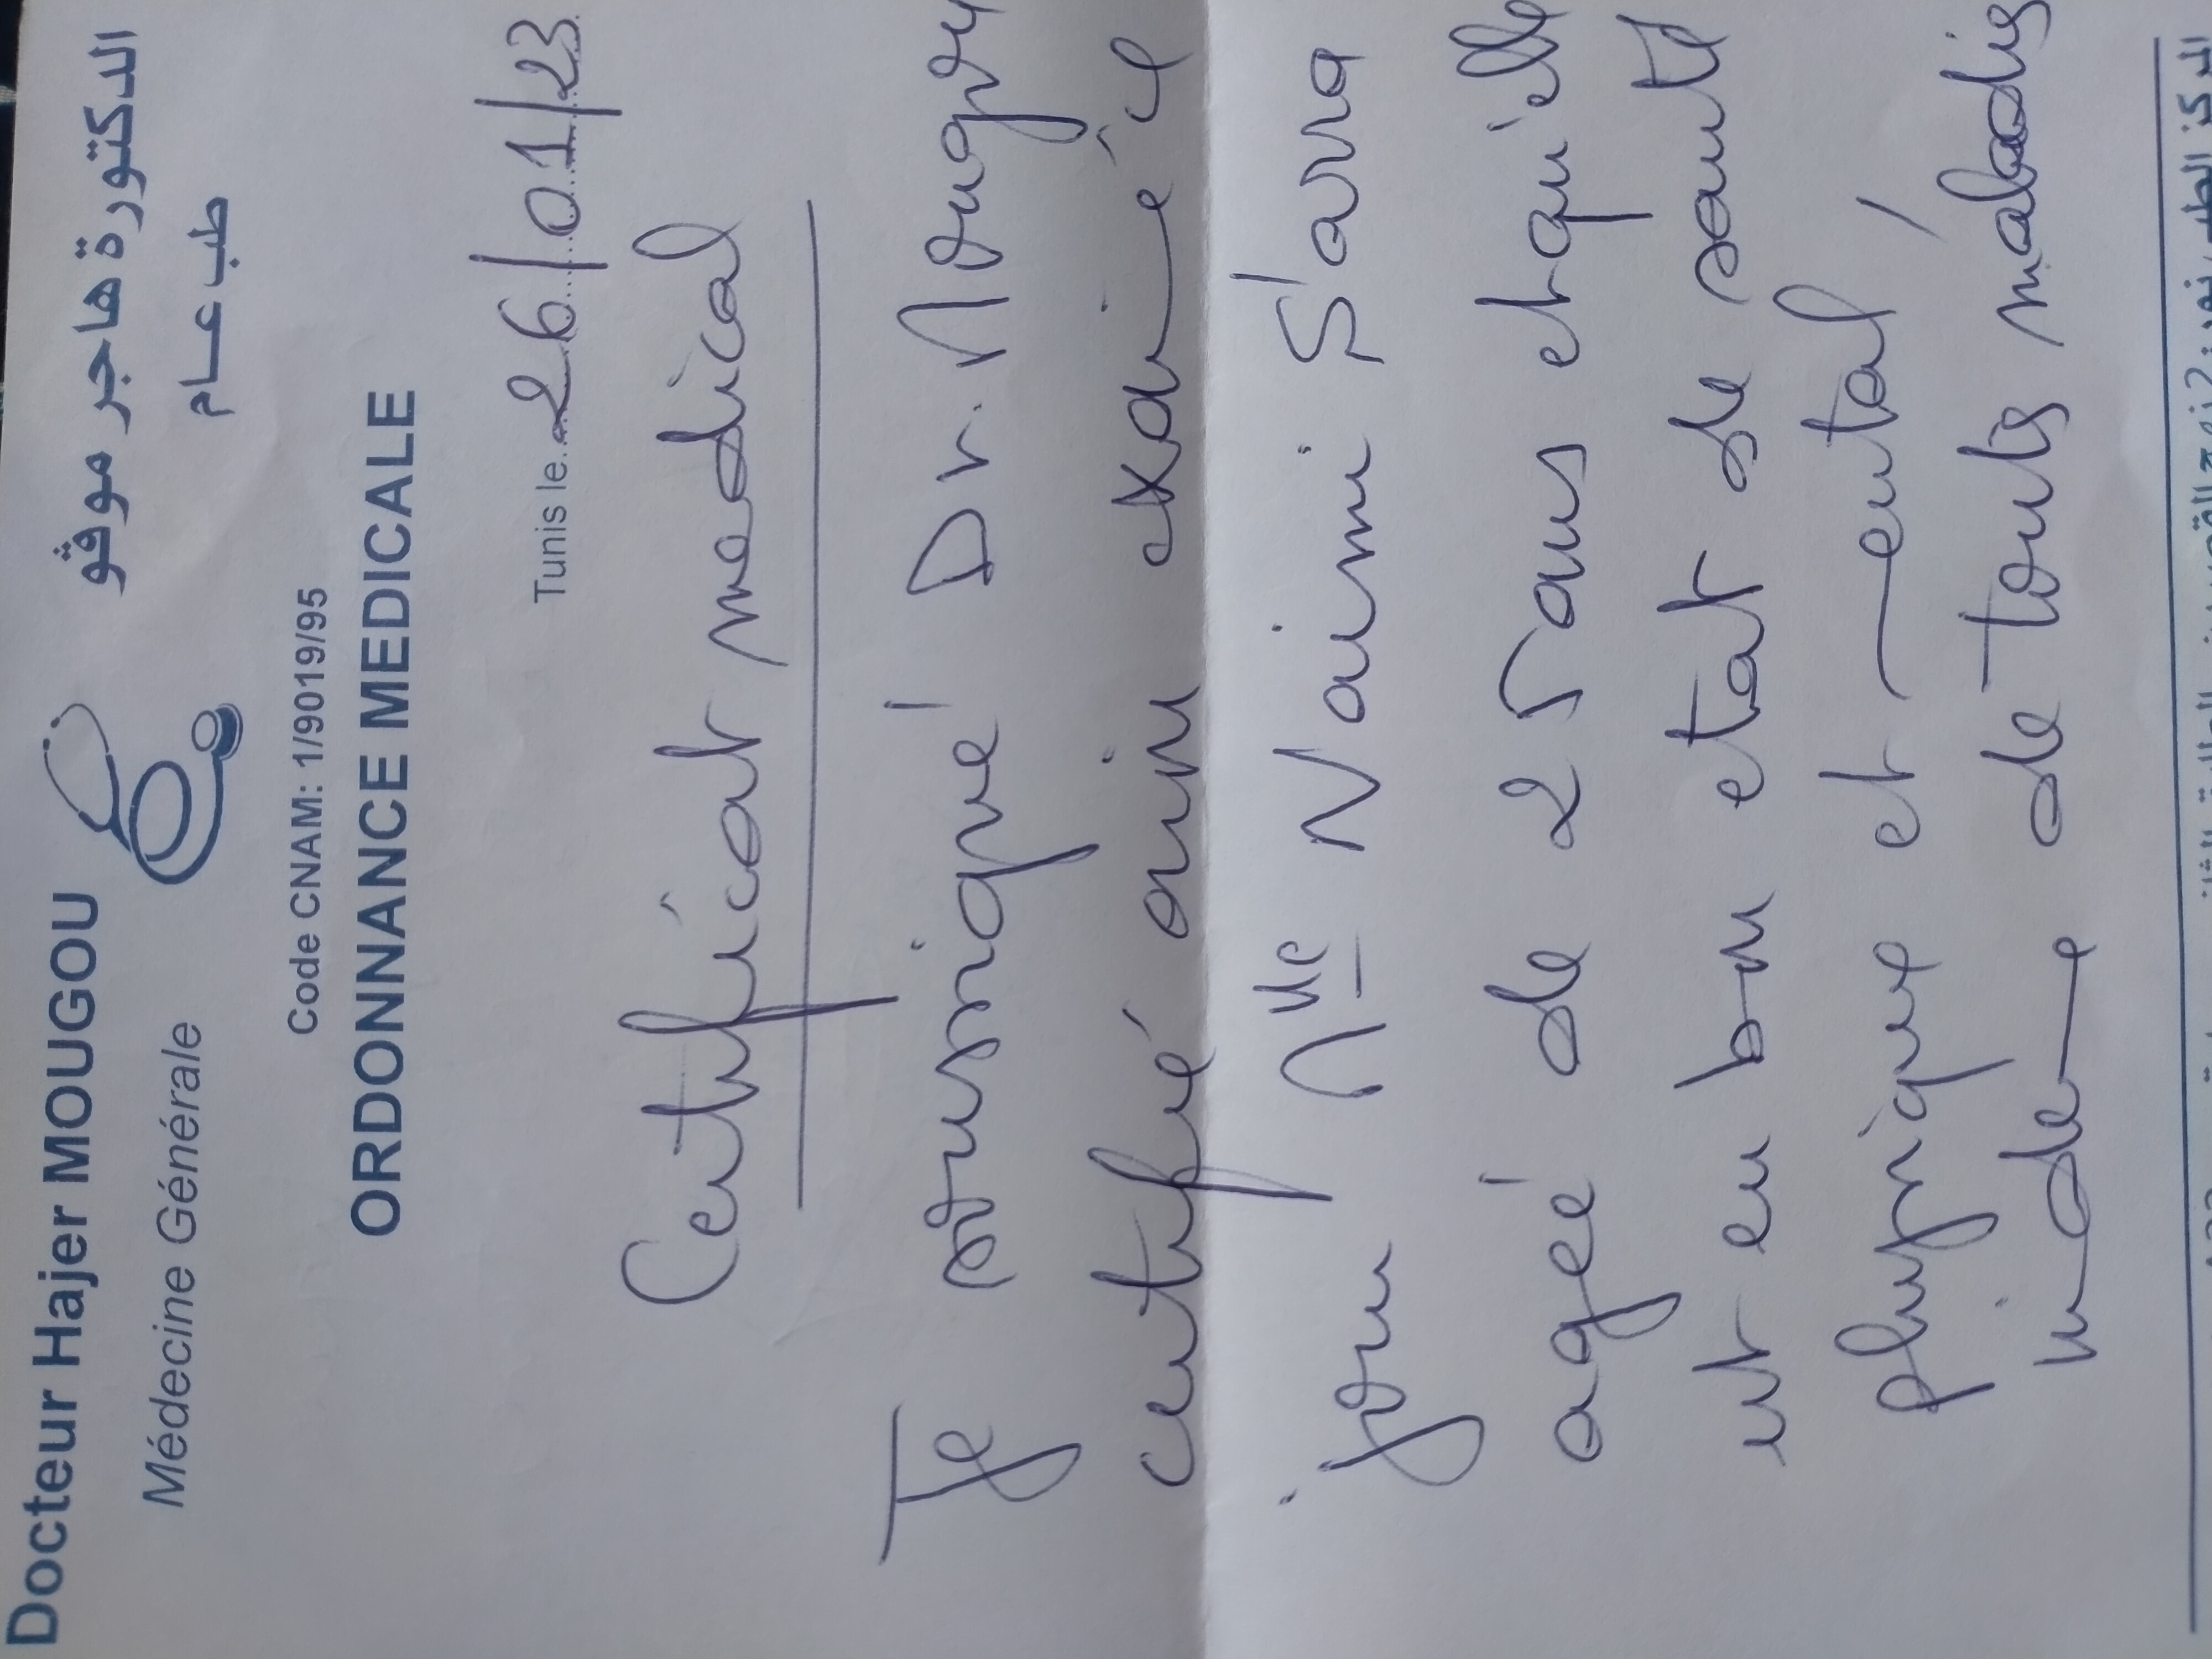 Docteur Hajer MOUGOU
الدكتورة هاجر موقو
Médecine Générale
طب عام
Code CNAM: 1/9019/95
ORDONNANCE MEDICALE
Tunis le 26/01/23
Certificat medical
Je soussigné Dr. Mougou
certifié avoir examiée
jour Mlle Naimi Sarra
agée de 25 ans et qu'elle
est en bon etat de santé
physique et mental
indeme de touts maladies